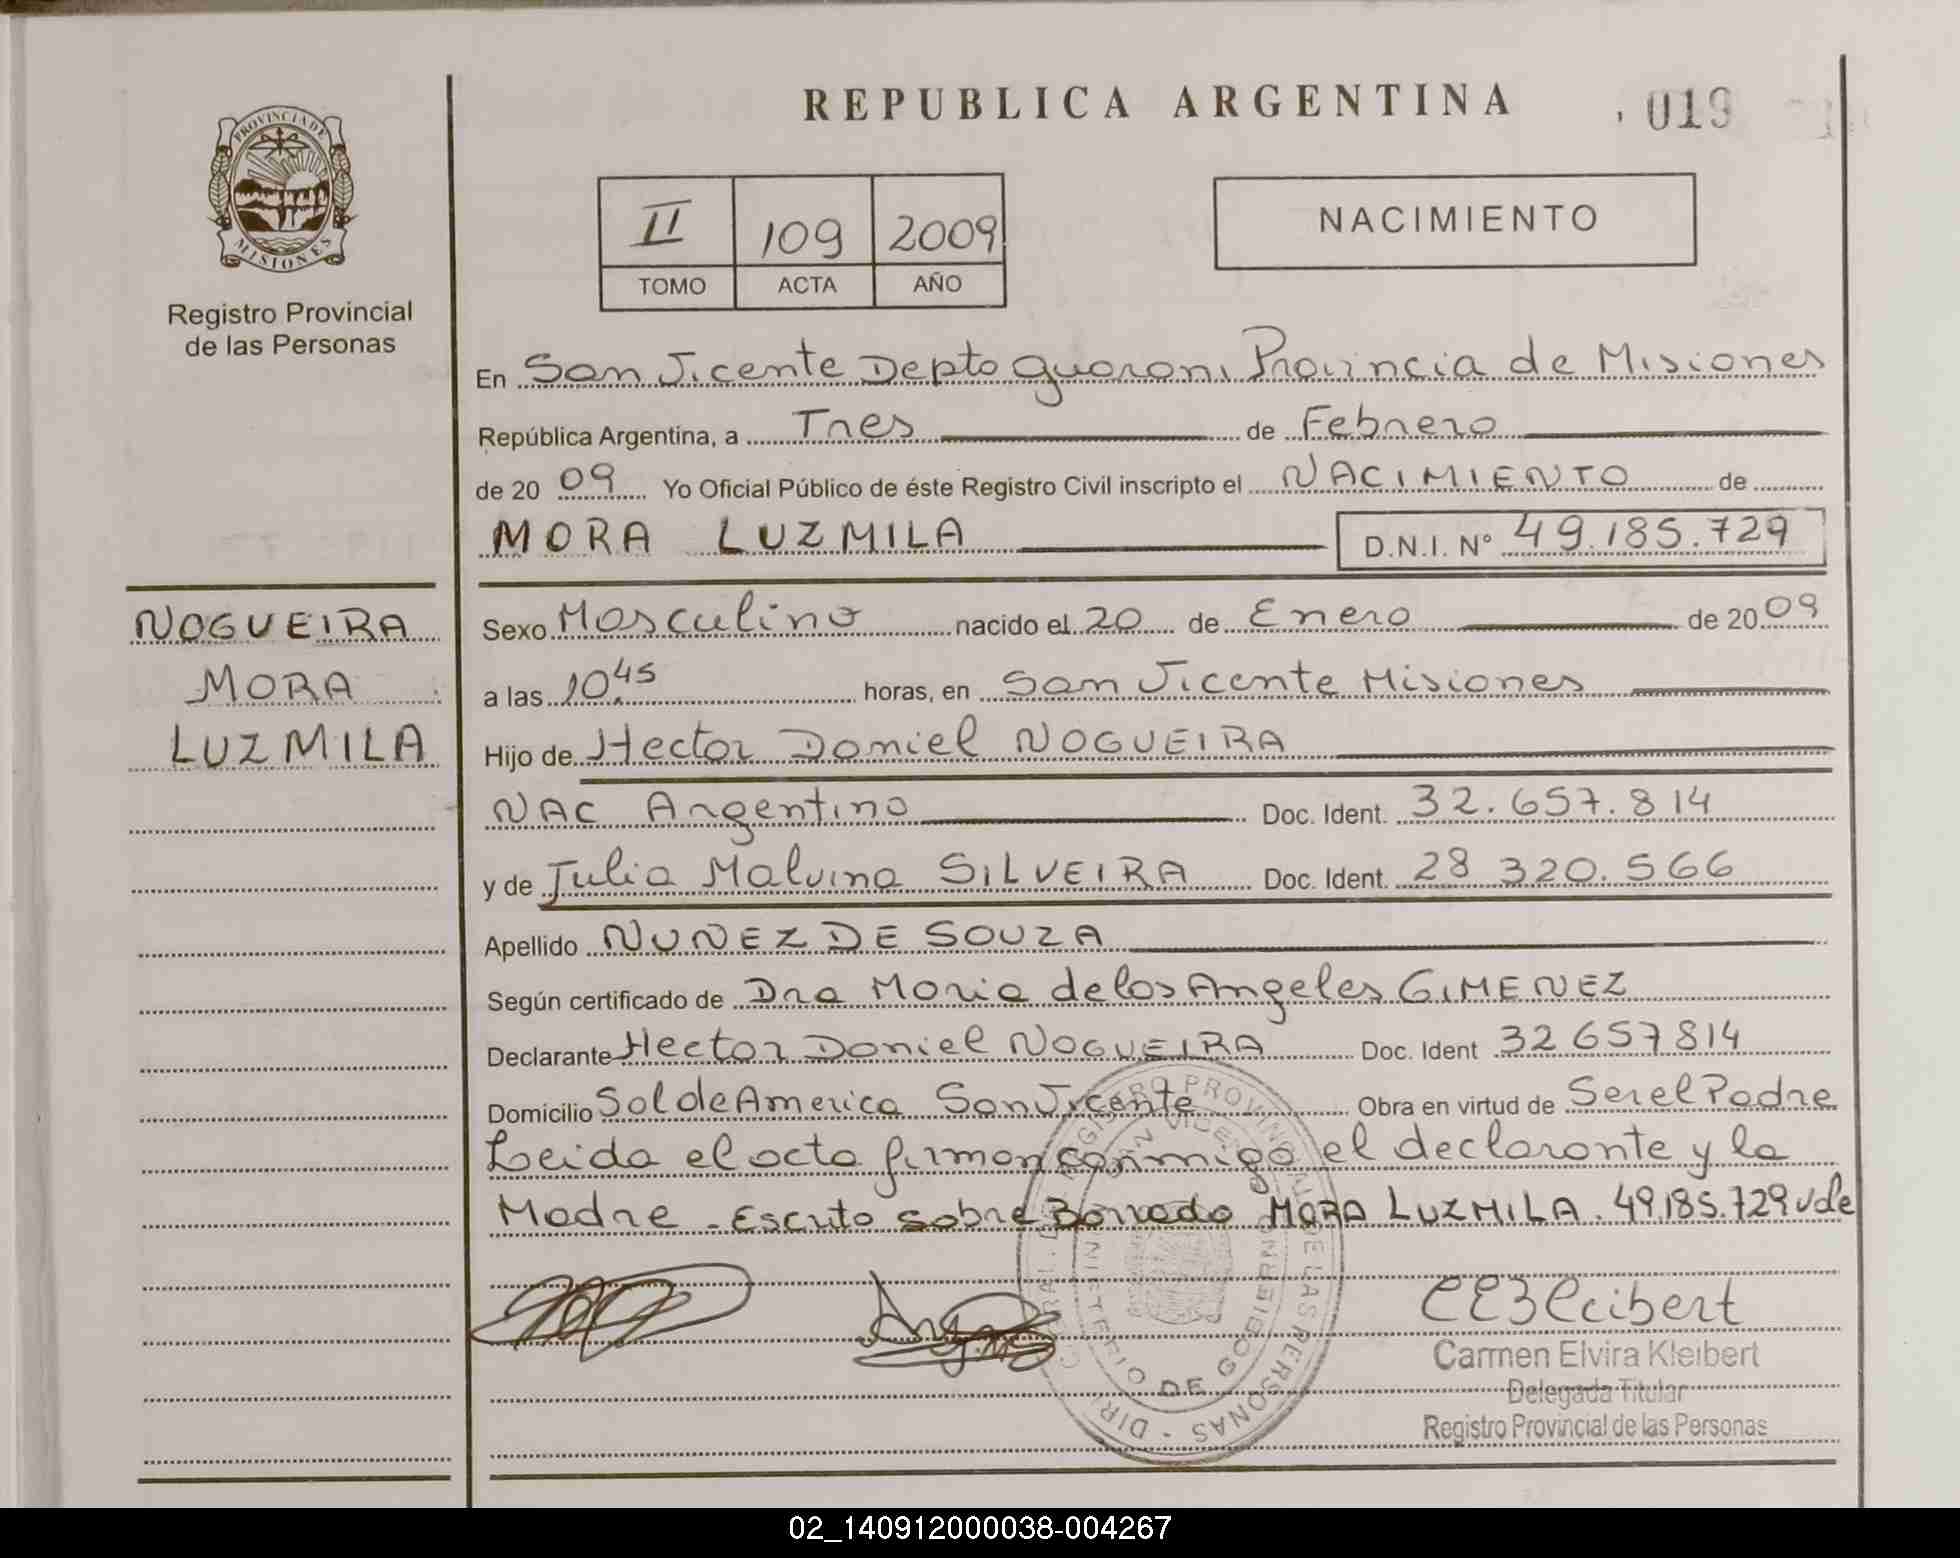 REPUBLICA ARGENTINA
019
PROVINCIA DE
MISIONES
Registro Provincial
de las Personas
II 109 2009
TOMO ACTA AÑO
NACIMIENTO
En San Vicente Depto Guarani Provincia de Misiones
República Argentina, a Tres de Febrero
de 20 09 Yo Oficial Público de éste Registro Civil inscripto el NACIMIENTO de
MORA LUZMILA D.N.I. Nº 49.185.729
NOGUEIRA
MORA
LUZMILA
Sexo Masculino nacido el 20 de Enero de 2009
a las 10.45 horas, en San Vicente Misiones
Hijo de Hector Daniel NOGUEIRA
NAC Argentino Doc. Ident. 32.657.814
y de Julia Malvina SILVEIRA Doc. Ident. 28 320.566
Apellido NUNEZ DE SOUZA
Según certificado de Dra Maria de los Angeles GIMENEZ
Declarante Hector Daniel NOGUEIRA Doc. Ident 32 657 814
Domicilio Sol de America San Vicente Obra en virtud de Ser el Padre
Leida el acta firman conmigo el declarante y la
Madre - Escrito sobre Borrado MORA LUZMILA. 49.185.729 Vale
Carmen Elvira Kleibert
Delegada Titular
Registro Provincial de las Personas
02_140912000038-004267